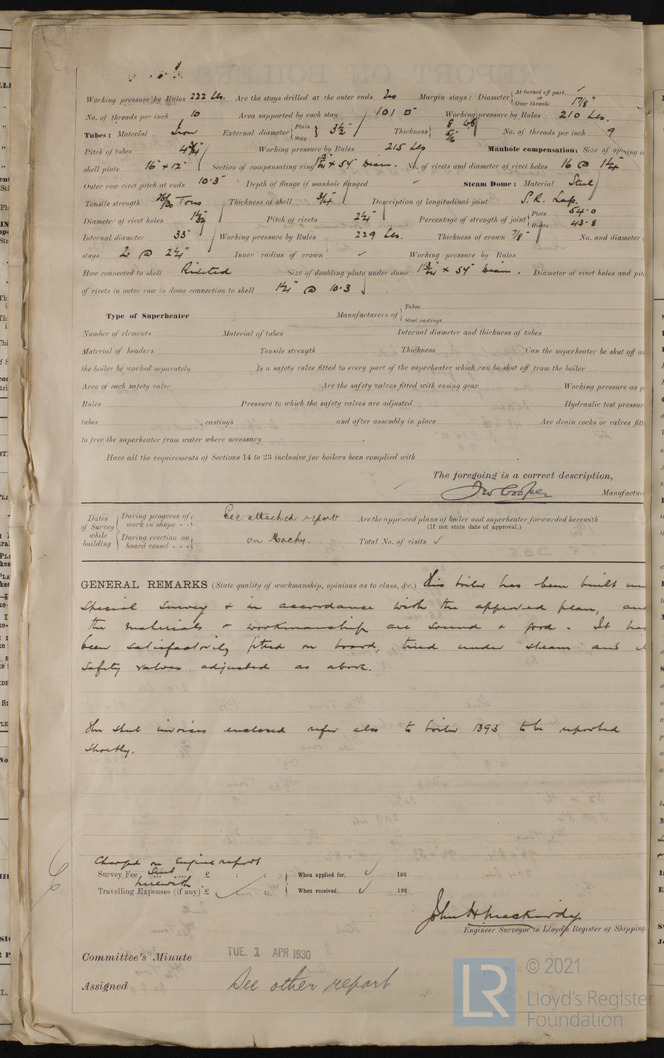 Working pressure by Rules 222 Lbs. Are the stays drilled at the outer ends No Margin stays: Diameter { At turned off part, ✓ or Over threads 1 7/8"
No. of threads per inch 10 Area supported by each stay 101 □" Working pressure by Rules 210 Lbs.
Tubes: Material Iron External diameter { Plain Stay } 3 1/2" Thickness { 8 WG 5/16 No. of threads per inch 9
Pitch of tubes Working pressure by Rules 215 Lbs Manhole compensation: Size of opening in
shell plate 16" × 12" Section of compensating ring × 54" Diam. No. of rivets and diameter of rivet holes 16 @ 1 1/4"
Outer row rivet pitch at ends 10.3" Depth of flange if manhole flanged ✓ Steam Dome: Material Steel
Tensile strength 26/30 Tons Thickness of shell 3/4" Description of longitudinal joint S.R. Lap.
Diameter of rivet holes Pitch of rivets Percentage of strength of joint { Plate 54.0 Rivets 43.8
Internal diameter 33" Working pressure by Rules 229 Lbs. Thickness of crown 7/8" No. and diameter of
stays 2 @ 2 1/4" Inner radius of crown ✓ Working pressure by Rules
How connected to shell Riveted Size of doubling plate under dome × 54" Diam. Diameter of rivet holes and pitch
of rivets in outer row in dome connection to shell 1 1/4" @ 10.3
Type of Superheater Manufacturers of { Tubes Steel castings
Number of elements Material of tubes Internal diameter and thickness of tubes
Material of headers Tensile strength Thickness Can the superheater be shut off a
the boiler be worked separately Is a safety valve fitted to every part of the superheater which can be shut off from the boiler
Area of each safety valve Are the safety valves fitted with easing gear Working pressure as p
Rules Pressure to which the safety valves are adjusted Hydraulic test pressure
tubes , castings and after assembly in place Are drain cocks or valves fitt
to free the superheater from water where necessary
Have all the requirements of Sections 14 to 23 inclusive for boilers been complied with
The foregoing is a correct description,
Jno Cooper Manufactur
Dates of Survey while building { During progress of work in shops - - } See attached report Are the approved plans of boiler and superheater forwarded herewith (If not state date of approval.)
{ During erection on board vessel - - - } on Machy. Total No. of visits ✓
GENERAL REMARKS (State quality of workmanship, opinions as to class, &c.) This boiler has been built un
Special Survey & in accordance with the approved plan, and
the materials & workmanship are sound & good. It has
been satisfactorily fitted on board, tried under steam and
safety valves adjusted as above.
The steel invoices enclosed refer also to boiler 1393 to be reported
shortly.
Charged on Engine report
Survey Fee ... £ : : When applied for, ✓ 192
Travelling Expenses (if any) £ : : When received, ✓ 192
Engineer Surveyor to Lloyd's Register of Shipping.
Committee's Minute TUE. 1 APR 1930
Assigned See other report
LR © 2021
Lloyd's Register
Foundation